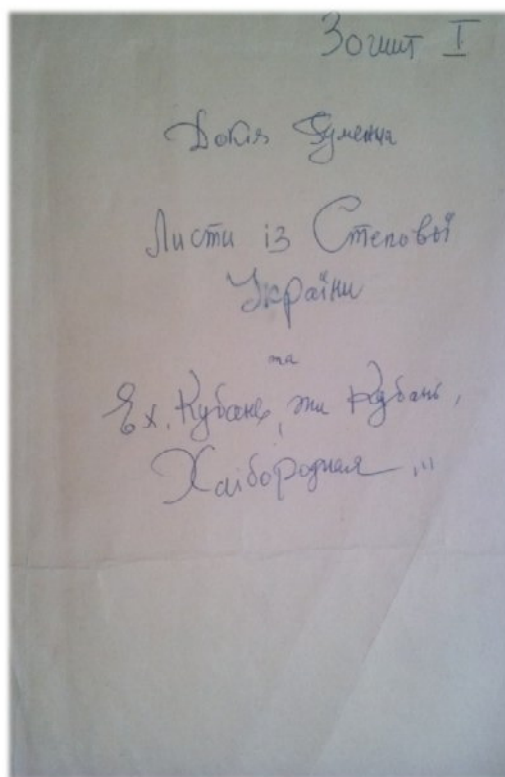 Зошит I
Докія Гуменна
Листи із Степової
України
та
Ех, Кубань, ти Кубань,
Хлібородная...